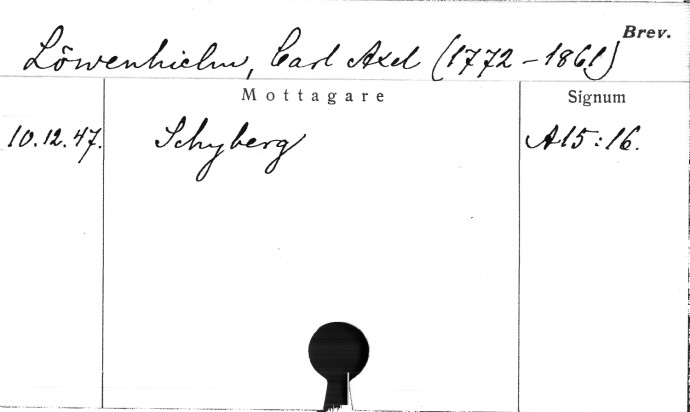 Brev.
Löwenhielm, Carl Axel (1772-1861)
Mottagare Signum
10.12.47. Schyberg A15:16.